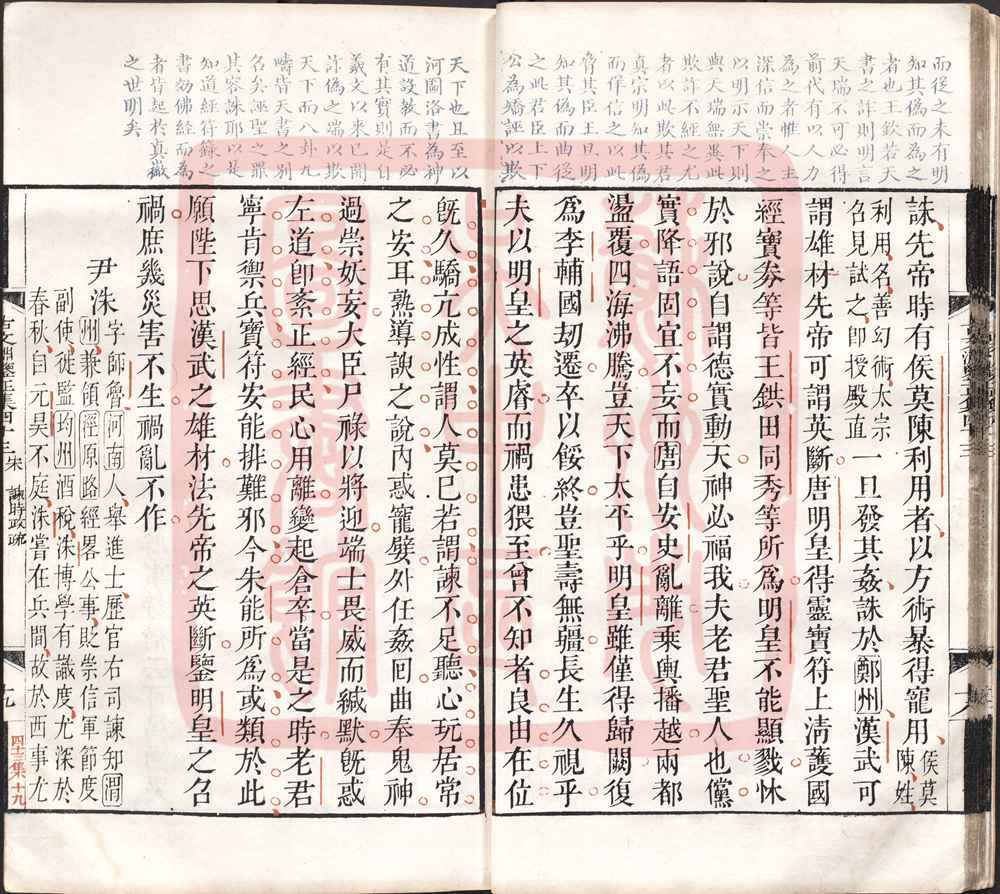 而從之未有明
知其偽而為之
者也王欽若天
書之詐則明言
天瑞不可必得
前代有以人力
為之者惟人主
深信而崇奉之
以明示天下則
與天瑞無異此
欺詐不經之尤
者以此欺其君
真宗明知其偽
而佯信之以此
脅其臣王旦明
知其偽而曲從
之此君臣上下
公為矯誣以欺
誅先帝時有侯莫陳利用者以方術暴得寵用侯莫陳姓
利用名善幻術太宗
名見試之卽授殿直一旦發其姦誅於鄭州漢武可
謂雄材先帝可謂英斷唐明皇得靈寶符上淸護國
經寶劵等皆王鉷田同秀等所爲明皇不能顯戮怵
於邪說自謂德實動天神必福我夫老君聖人也儻
實降語固宜不妄而唐自安史亂離乘輿播越兩都
盪覆四海沸騰豈天下太平乎明皇雖僅得歸闕復
爲李輔國刧遷卒以餒終豈聖壽無疆長生久視乎
夫以明皇之英睿而禍患猥至曾不知者良由在位
天下也且至以
河圖洛書為神
道設教而不必
有其實則是自
羲文以來已開
詐偽之端以欺
天下而八卦九
疇皆天書之別
名矣誣聖之罪
其容誅耶以是
知道經符籙之
書勿佛經而為
者皆起於真嶶
之世明矣
旣久驕亢成性謂人莫已若謂諫不足聽心玩居常
之安耳熟導諛之說內惑寵嬖外任姦回曲奉鬼神
過崇妖妄大臣尸祿以將迎端士畏威而緘默旣惑
左道卽紊正經民心用離變起倉卒當是之時老君
寧肯禦兵寶符安能排難邪今朱能所爲或類於此
願陛下思漢武之雄材法先帝之英斷鑒明皇之召
禍庶幾災害不生禍亂不作
尹洙字師魯河南人舉進士歷官右司諫知渭
州兼領經原路經畧公事貶崇信軍節度
副使徙監均州酒稅洙博學有識度尤深於
春秋自元昊不庭洙嘗在兵間故於西事尤
宋
諫時政疏
十九
四十三集 十九